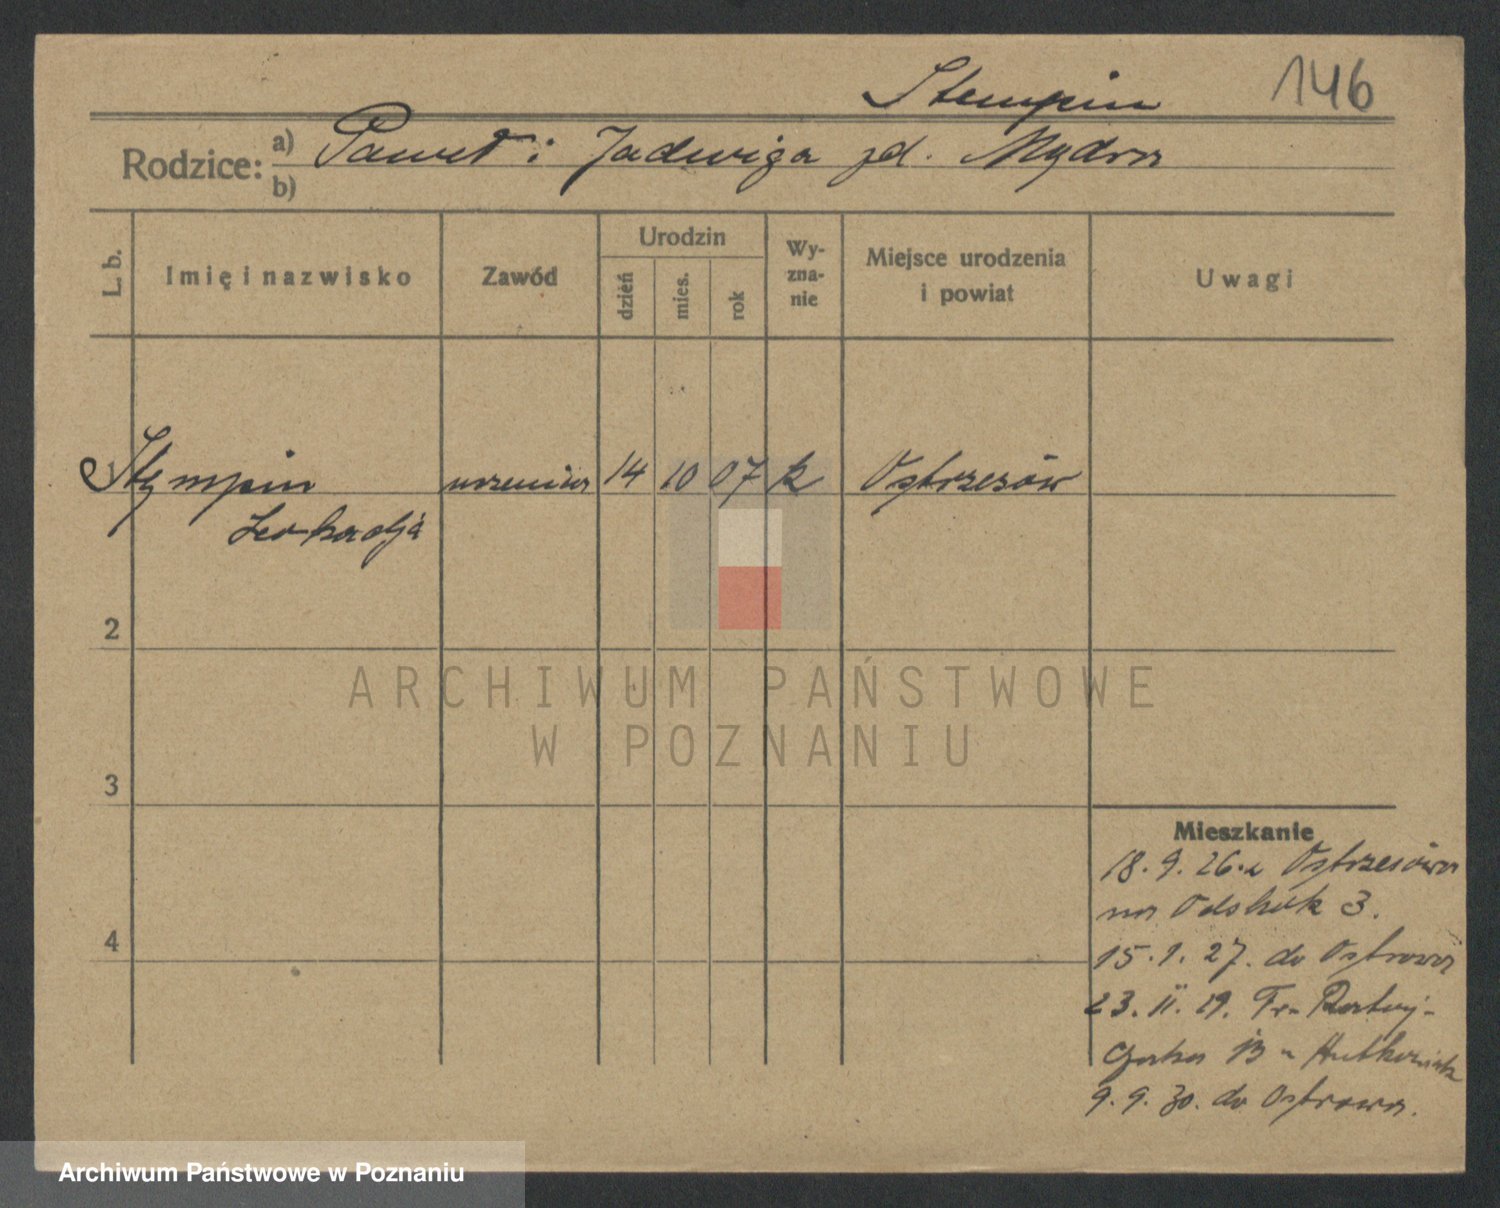 146
Stempin
Rodzice: a) Paweł i Jadwiga zd. Mądra
b)
L. b.
Imię i nazwisko
Zawód
Urodzin
dzień
mies.
rok
Wy-
zna-
nie
Miejsce urodzenia
i powiat
Uwagi
1 Stempin uczenica 14 10 07 k Ostrzeszów
Leokadja
2
3
4
Mieszkanie
18. 9. 26. z Ostrzeszowa
na 3.
15. 1. 27. do Ostrowa
23. II. 29. Fr. Rataj-
czaka
9. 9. 30. do Ostrowa.
ARCHIWUM PAŃSTWOWE
W POZNANIU
Archiwum Państwowe w Poznaniu